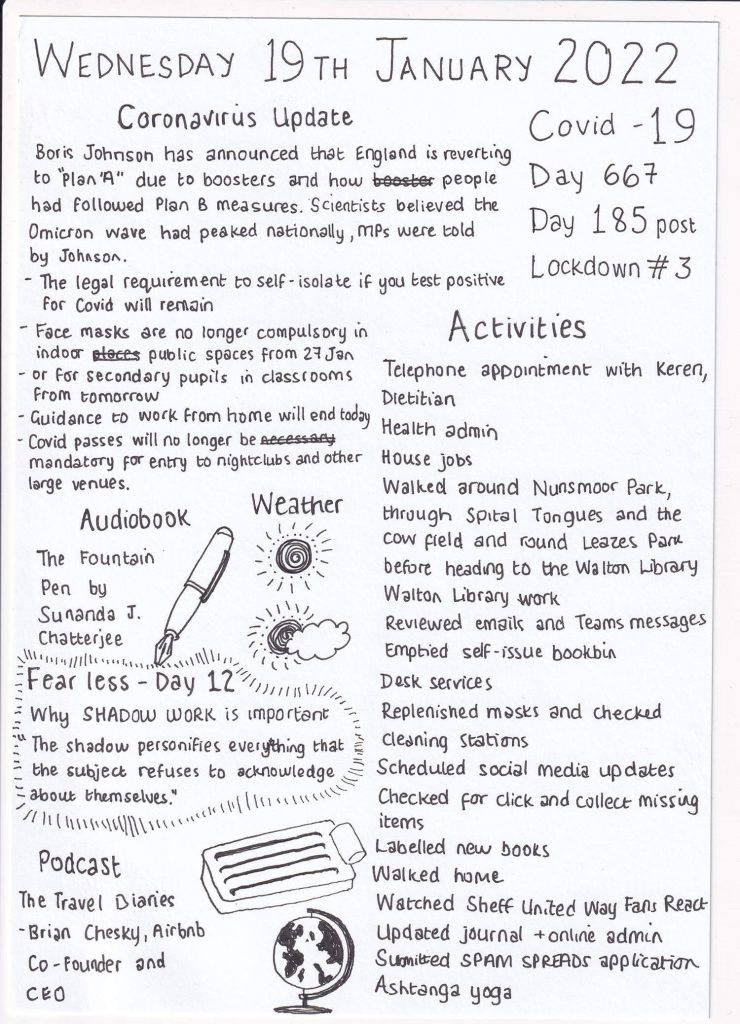 WEDNESDAY 19TH JANUARY 2022
Coronavirus Update
Boris Johnson has announced that England is reverting
to "Plan 'A'" due to boosters and how booster people
had followed Plan B measures. Scientists believed the
Omicron wave had peaked nationally, MPs were told
by Johnson.
- The legal requirement to self-isolate if you test positive
for Covid will remain
- Face masks are no longer compulsory in
indoor places public spaces from 27 Jan
- or for secondary pupils in classrooms
from tomorrow
- Guidance to work from home will end today
- Covid passes will no longer be necessary
mandatory for entry to nightclubs and other
large venues.
Covid -19
Day 667
Day 185 post
Lockdown #3
Activities
Telephone appointment with Keren,
Dietitian
Health admin
House jobs
Walked around Nunsmoor Park,
through Spital Tongues and the
cow field and round Leazes Park
before heading to the Walton Library
Walton Library work
Reviewed emails and Teams messages
Emptied self-issue bookbin
Desk services
Replenished masks and checked
cleaning stations
Scheduled social media updates
Checked for click and collect missing
items
Labelled new books
Walked home
Watched Sheff United Way Fans React
Updated journal + online admin
Submitted SPAM SPREADS application
Ashtanga yoga
Audiobook
The Fountain
Pen by
Sunanda J.
Chatterjee
Weather
Fear less - Day 12
Why SHADOW WORK is important
"The shadow personifies everything that
the subject refuses to acknowledge
about themselves."
Podcast
The Travel Diaries
- Brian Chesky, Airbnb
Co-Founder and
CEO